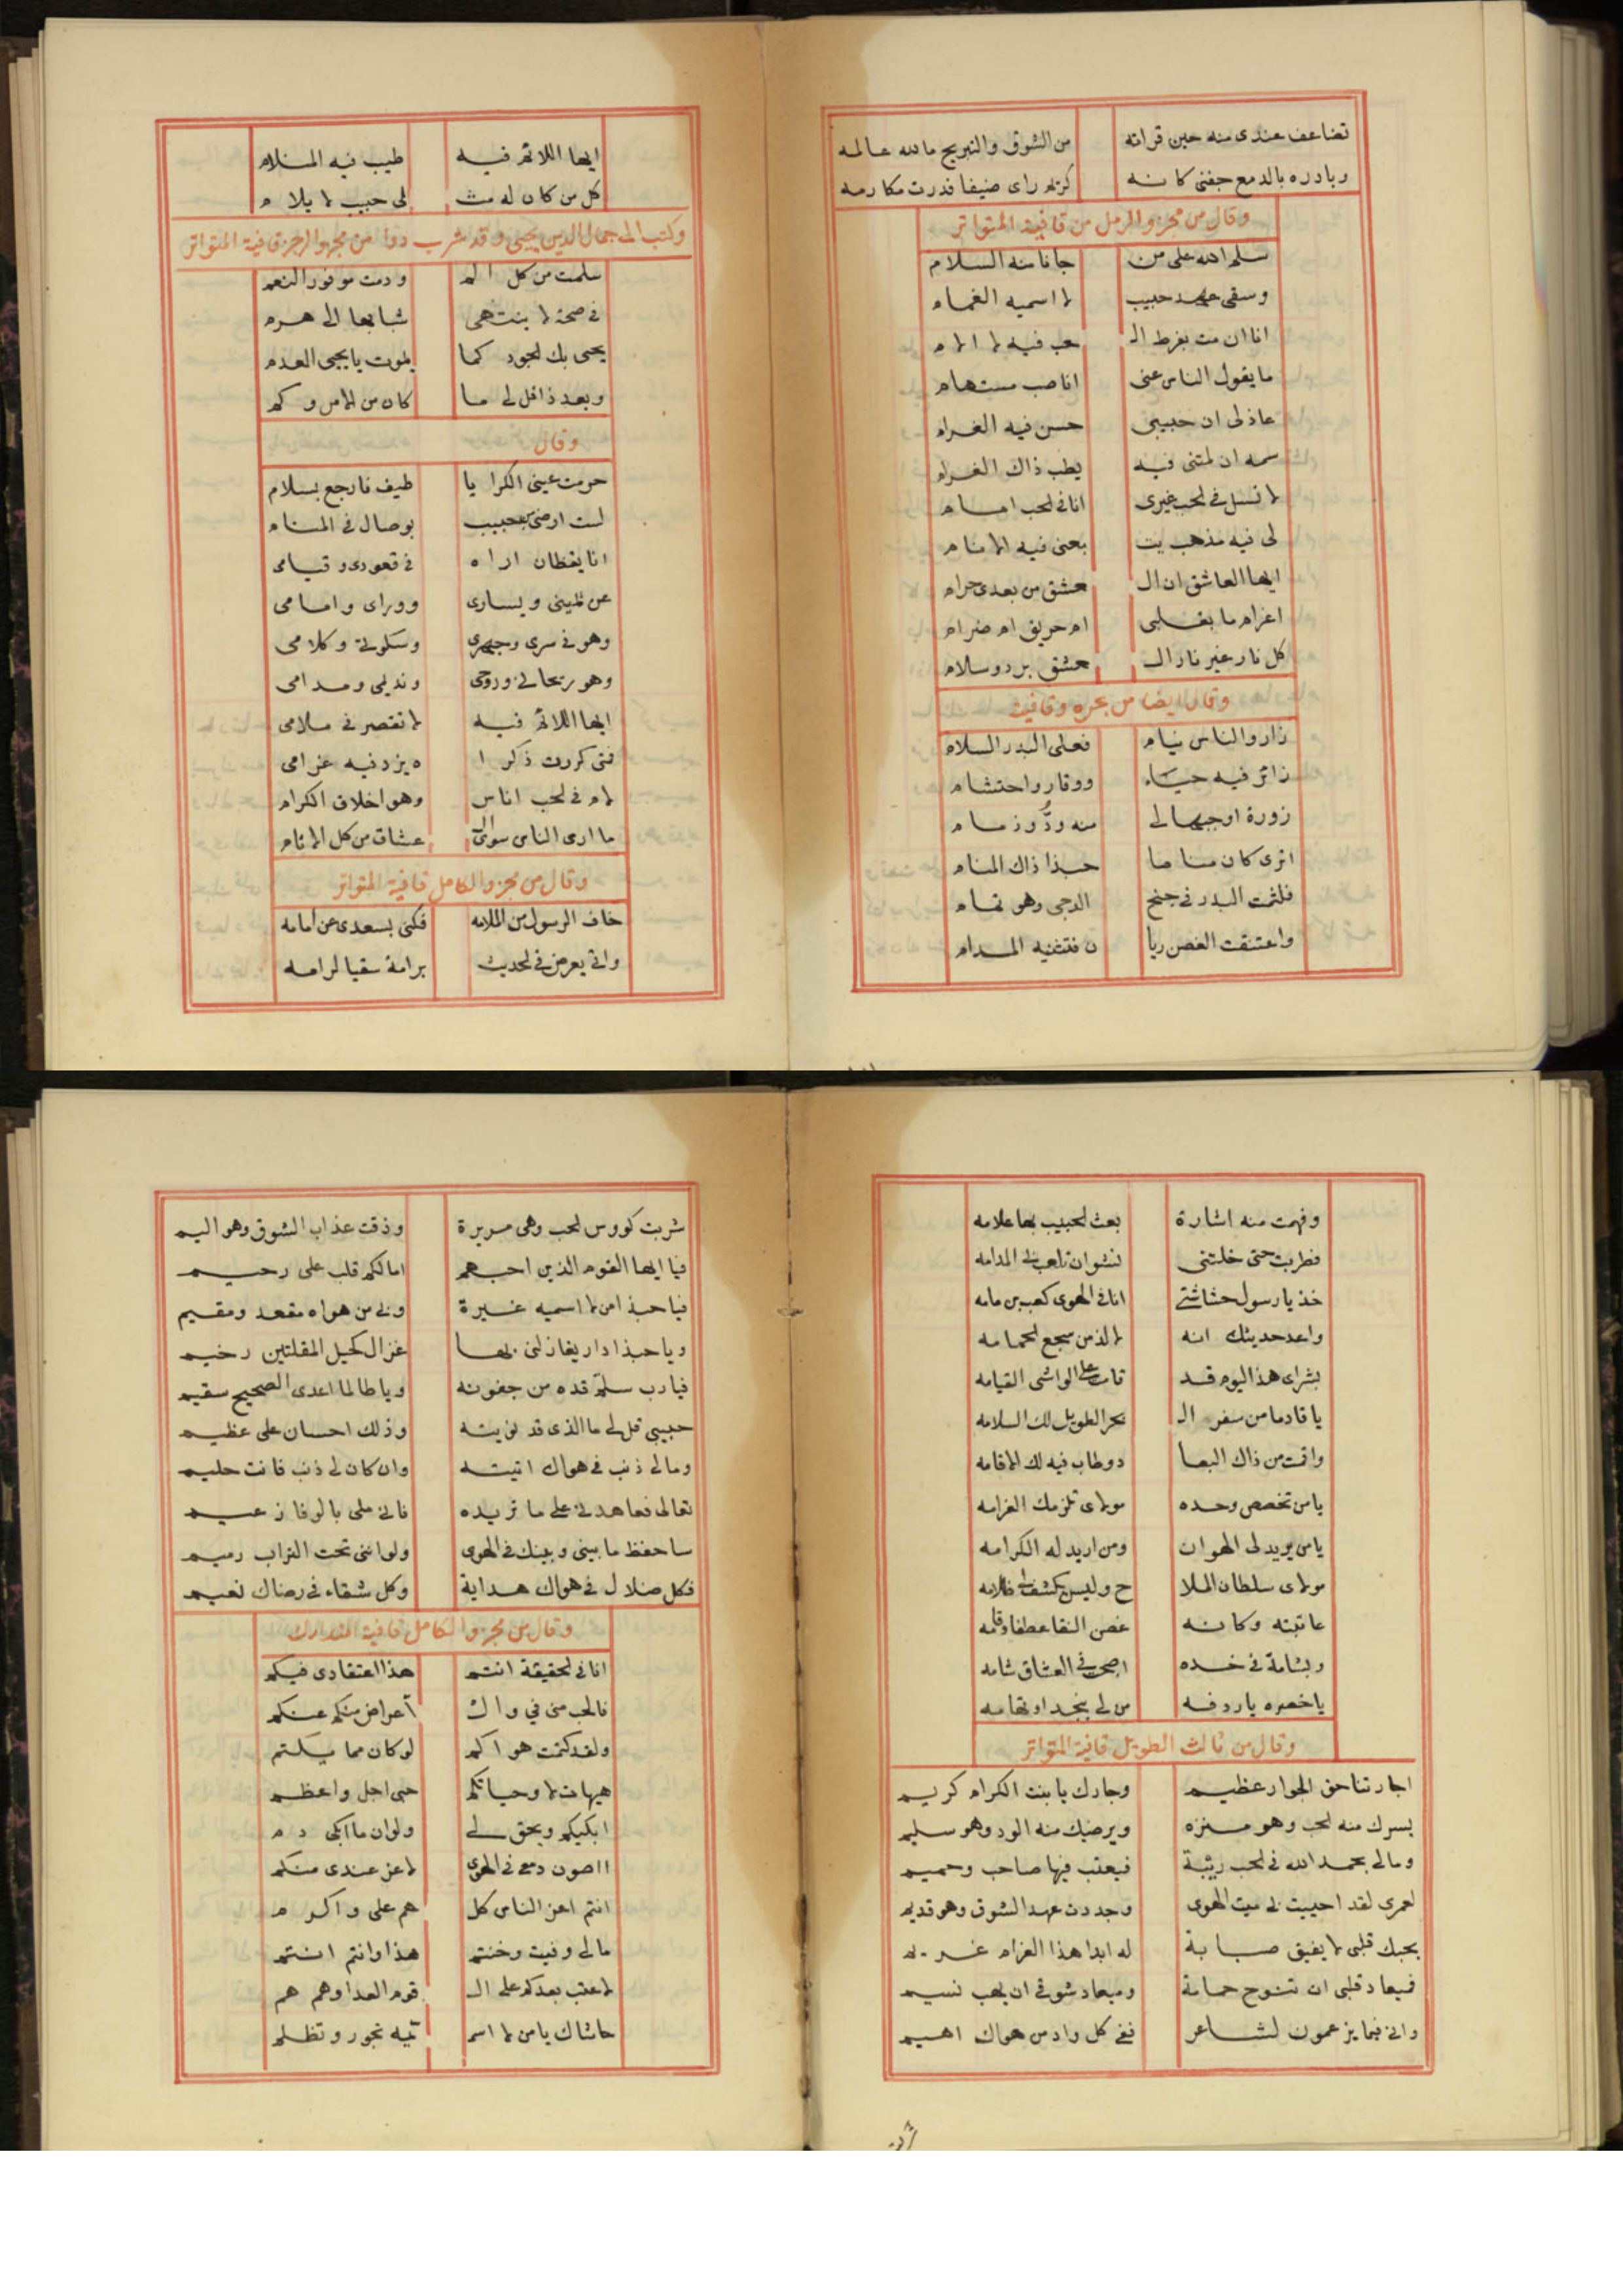 تضاعف عندى منه حين قراته من الشوق والتبريح مالله عالمه
وبادره بالدمع جفنى كانه كريم راى ضيفا فدرت مكارمه
وقال من مجزو الرمل من قافية المتواتر
سلم الله على من جانا منه السلام
وسقى عهد حبيب لا اسميه الغمام
انا ان مت بفرط الـ حب فيه لا الام
ما يقول الناس عنى انا صب مستهام
عاذلى ان حبيبى حسن فيه الغرام
سمه ان لمتنى فيه يطب ذاك الغرام
لا تسل فى الحب غيرى انا فى الحب امام
لى فيه مذهب يتـ بعنى فيه الانام
ايها العاشق ان الـ عشق من بعدى حرام
اغرام ما بقلبى ام حريق ام ضرام
كل نار غير نار الـ عشق برد وسلام
وقال ايضا من بحره وقافيته
زار والناس نيام فعلى البدر السلام
زائر فيه حياء ووقار واحتشام
زورة اوجبها لى منه ودٌّ وزمام
اترى كان مناما حبذا ذاك المنام
فلثمت البدر فى جنح الدجى وهو تمام
واعتنقت الغصن ريا ن فتثنيه المدام
ايها اللائم فيه طيب فيه الملام
كل من كان له مثـ لى حبيب لا يلام
وكتب الى جمال الدين يحيى وقد شرب دوا من مجزو الرجز قافية المتواتر
سلمت من كل الم ودمت موفور النعم
فى صحة لا ينتهى شبابها الى هرم
يحيى بك الجود كما يموت يا يحيى العدم
وبعد ذا قل لى ما كان من الامر وكم
وقال
حرمت عينى الكرا يا طيف فارجع بسلام
لست ارضى من حبيب بوصال فى المنام
انا يقظان اراه فى قعودى وقيامى
عن يمينى ويسارى وورائى وامامى
وهو فى سرى وجهرى وسكوتى وكلامى
وهو ريحانى وروحى ونديمى ومدامى
ايها اللائم فيه لا تقصر فى ملامى
فتى كررت ذكرا ه يزد فيه غرامى
لام فى الحب اناس وهو اخلاق الكرام
ما ارى الناس سوى الـ عشاق من كل الانام
وقال من مجزو الكامل قافية المتواتر
خاف الرسول من الملامه فكنى بسعدى عن امامه
واتى يعرض فى الحديث برامة سقيا لرامه
وفهمت منه اشارة بعث الحبيب بها علامه
فطربت حتى خلتنى نشوان تلعب بى المدامه
خذ يا رسول حشاشتى انا فى الهوى كعب بن مامه
واعد حديثك انه لالذ من سجع الحمامه
بشراى هذا اليوم قد قامت على الواشى القيامه
يا قادما من سفر الـ هجر الطويل لك السلامه
واقمت من ذاك البعا د وطاب فيه لك الاقامه
يا من تخصص وحده مولاى تلزمك الغرامه
يا من يريد لى الهوان ومن اريد له الكرامه
مولاى سلطان الملا ح وليس يكشف لى ظلامه
عاتبته وكانه غصن النقا عطفا وقامه
وبشامة فى خده اصبحت فى العشاق شامه
يا خصره يا ردفه من لى بنجد او تهامه
وقال من ثالث الطويل قافية المتواتر
اجارتنا حق الجوار عظيم وجارك يا بنت الكرام كريم
يسرك منه الحب وهو منزه ويرضيك منه الود وهو سليم
ومالى بحمد الله فى الحب ريبة فيعتب فيها صاحب وحميم
لعمرى لقد احييت لى ميت الهوى وجددت عهد الشوق وهو قديم
بحبك قلبى لا يفيق صبابة له ابدا هذا الغرام غريم
فميعاد قلبى ان تنوح حمامة وميعاد شوقى ان يهب نسيم
وانى فيما يزعمون لشاعر ففى كل واد من هواك اهيم
شربت
شربت كووس الحب وهى مريرة وذقت عذاب الشوق وهو اليم
فيا ايها القوم الذين احبهم امالكم قلب على رحيم
فيا حبذا من لا اسميه غيرة وبى من هواه مقعد ومقيم
ويا حبذا دار يغازلنى بها غزال كحيل المقلتين رخيم
فيا رب سلم قده من جفونه ويا طالما اعدى الصحيح سقيم
حبيبى قل لى ما الذى قد نويته وذلك احسان على عظيم
ومالى ذنب فى هواك اتيته وان كان لى ذنب فانت حليم
تعالى فعاهدنى على ما تريده فانى ملى بالوفا زعيم
ساحفظ ما بينى وبينك فى الهوى ولو اننى تحت التراب رميم
فكل ضلال فى هواك هداية وكل شقاء فى رضاك نعيم
وقال من مجزو الكامل قافية المتدارك
انا فى الحقيقة انتم هذا اعتقادى فيكم
فالحب منى فى وال أعراض منكم عنكم
ولقد كتمت هواكم لو كان مما يكتم
هيهات لا وحياتكم حبى اجل واعظم
ابكيكم ويحق لى ولو ان ما ابكى دم
ااصون دمعى فى الهوى لاعز عندى منكم
انتم اعز الناس كل هم على واكرم
مالى وفيت وخنتم هذا وانتم انتم
لا عتب بعدكم على الـ قوم العدا وهم هم
حاشاك يا من لا اسم يه تجور وتظلم